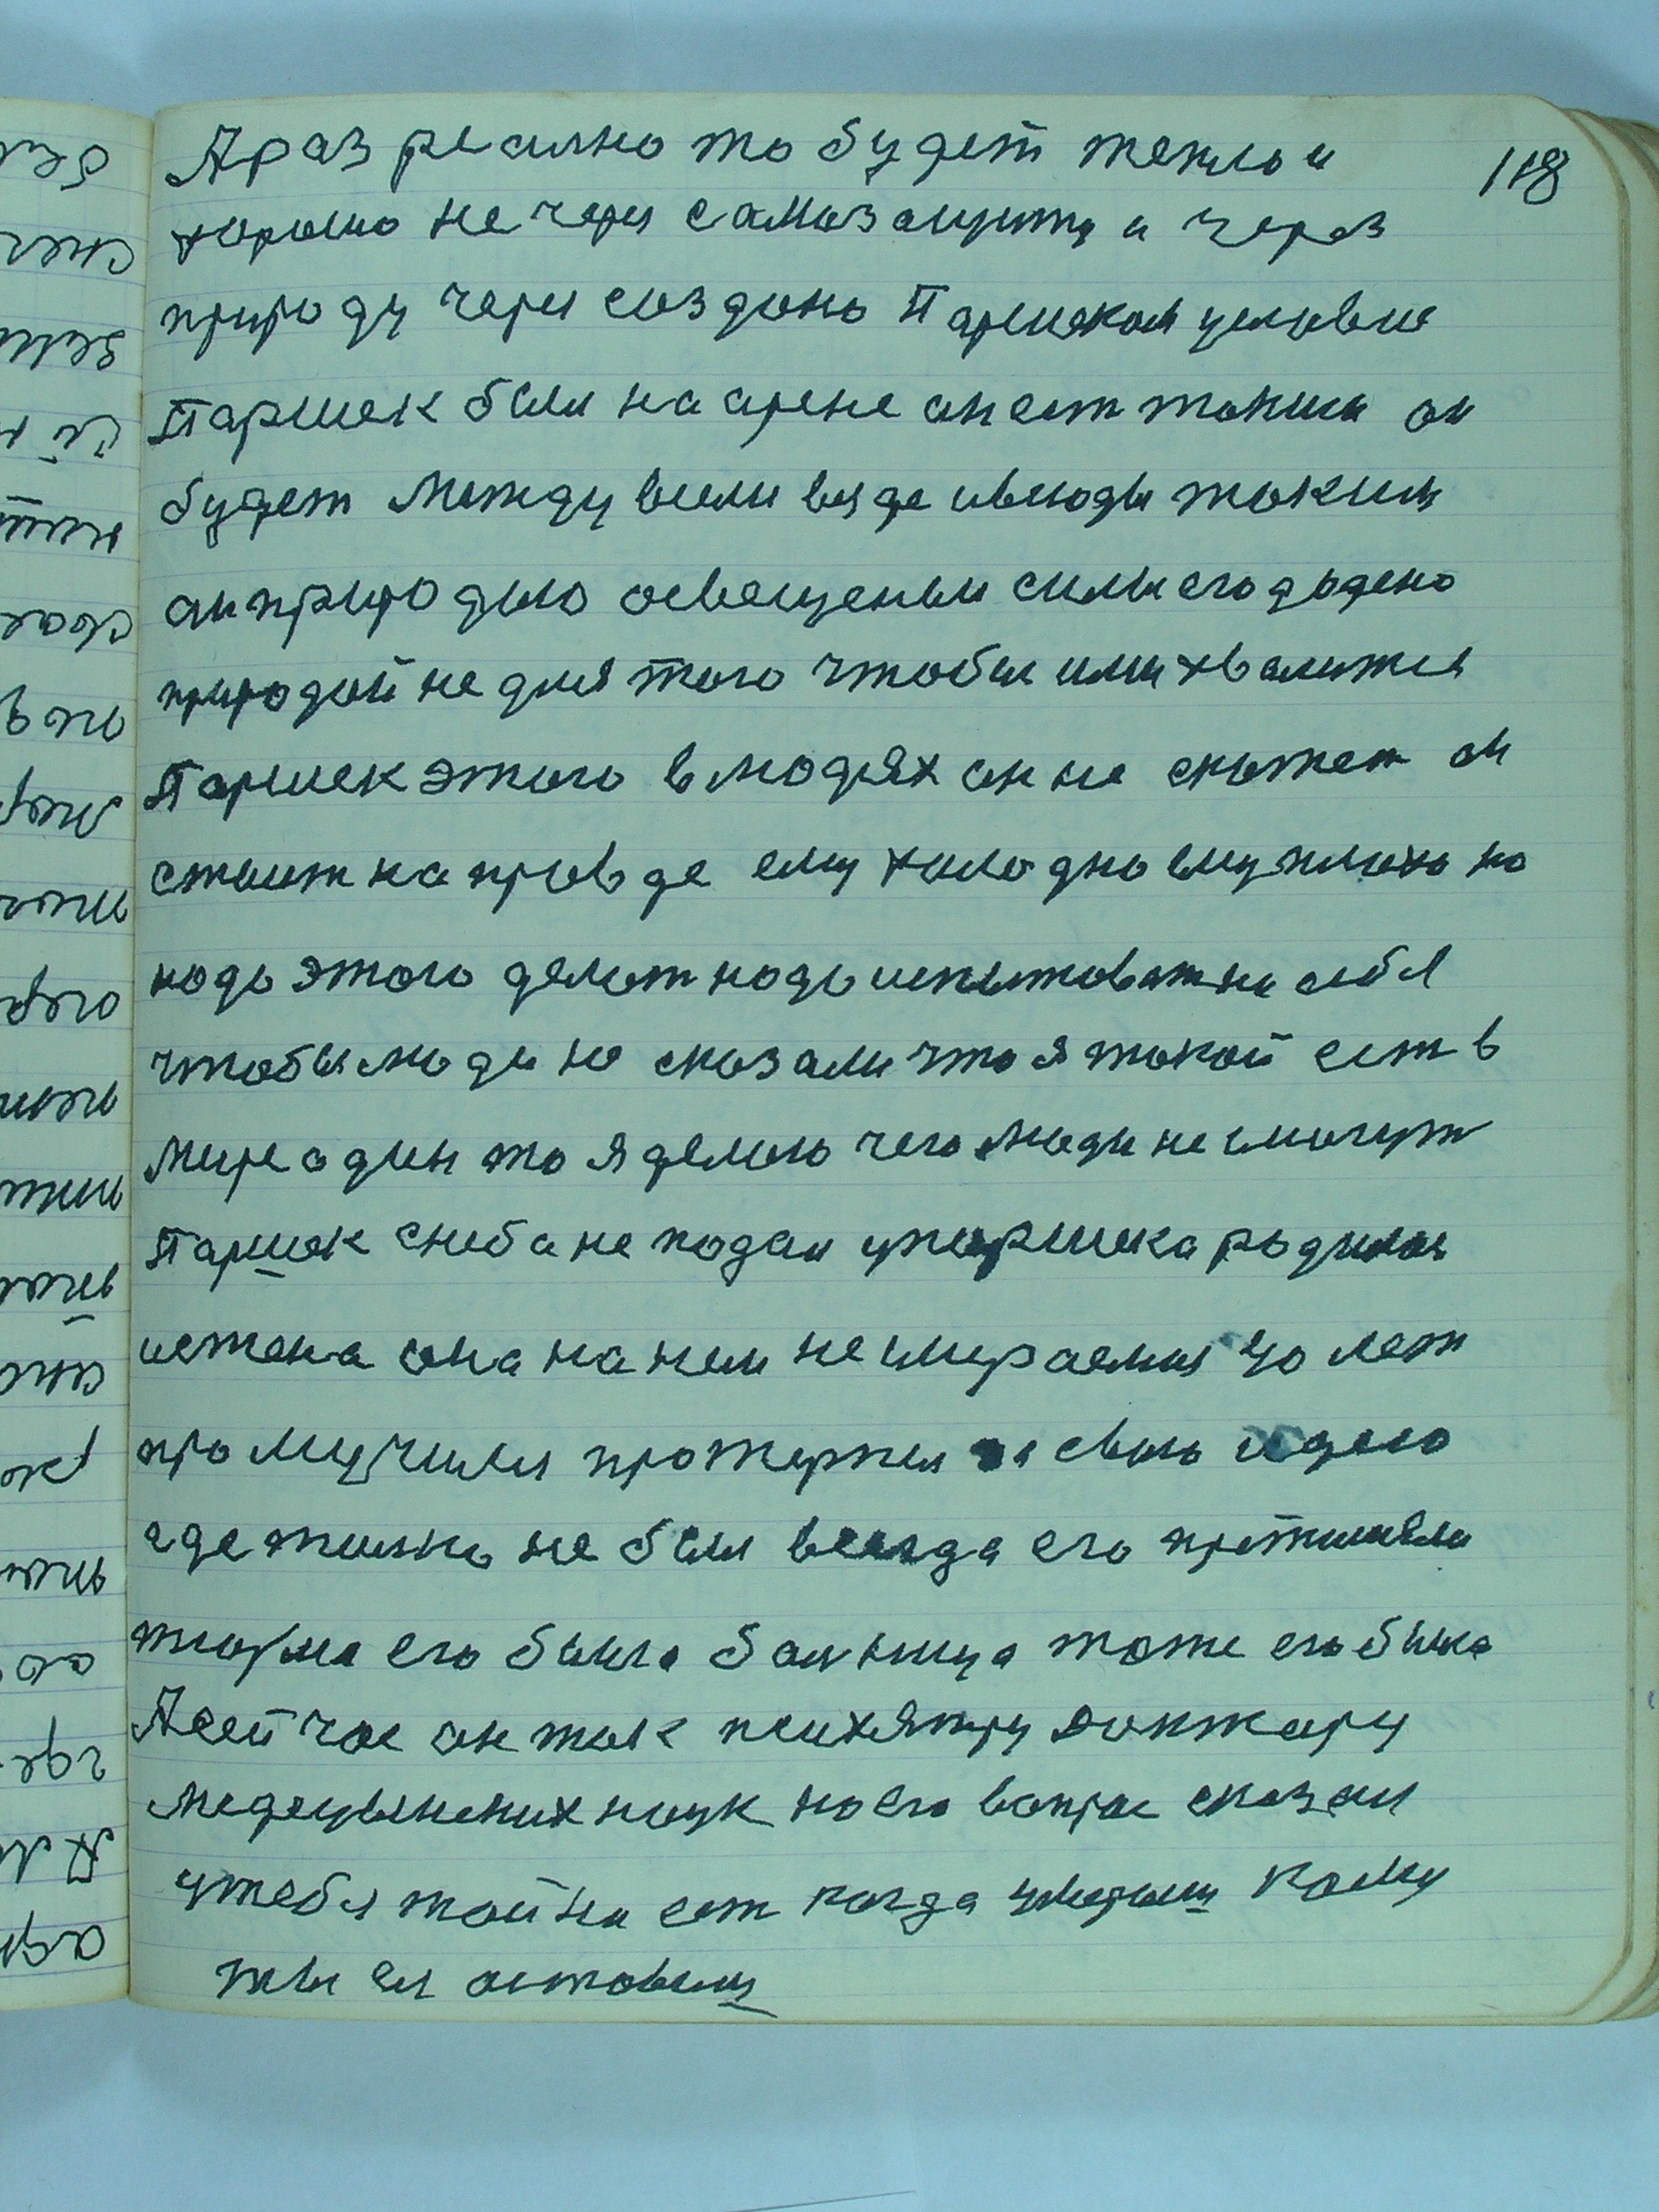 118
А раз реално то будет тепло и
хорошо не через самозащиту и через
природу через создано Паршеком условие
Паршек был на арене он ест таким он
будет между всем везде и всюды таким
он природно освещеным силы его додено
природой не для того чтобы ими хвалится
Паршек этого в людях он не скажет он
стоит на правде ему холодно ему плохо но
надо этого делат надо испытоват на себя
чтобы люди не сказали что я такой ест в
мире один то я делаю чего люди не смогут
Паршек с неба не подал у Паршека родилас
истена она на нем не стираемся 40 лет
промучился протерпел за свою идею
где толко не был всегда его
тюрма его была болница тоже его была
А сейчас он так психятру доктару
медецынских наук на его вапрос сказал
у тебя тайна ест когда умереш кому
ты ея оставиш